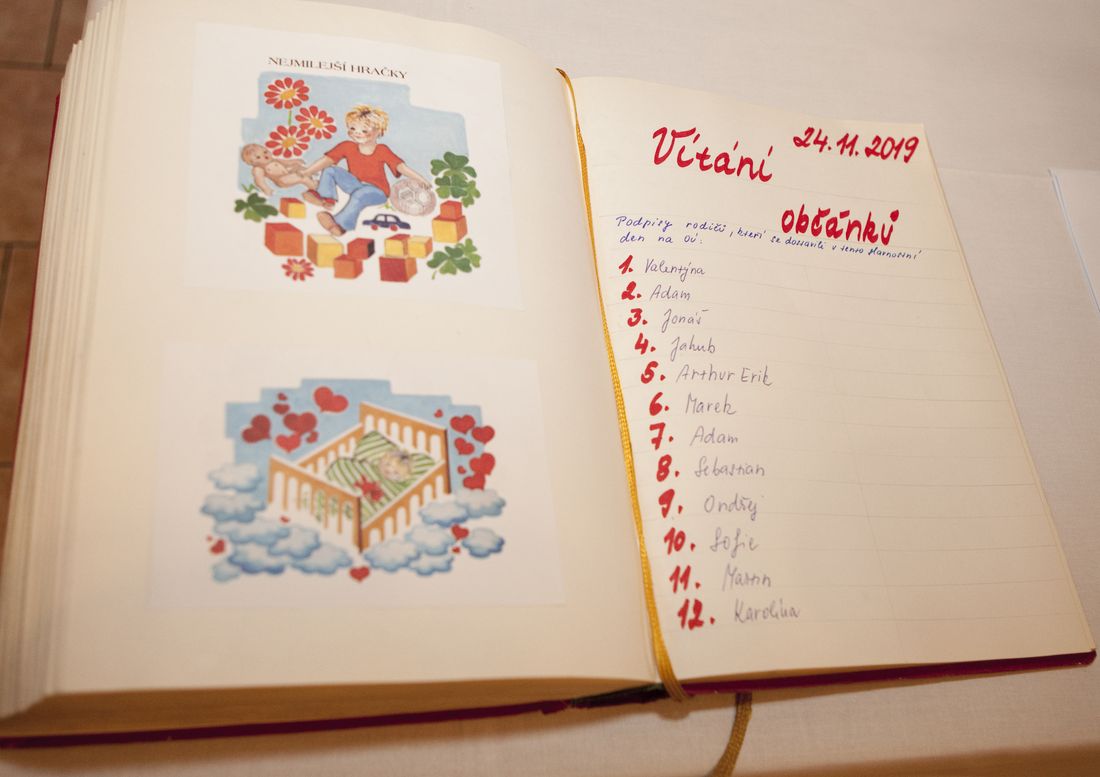 NEJMILEJŠÍ HRAČKY
Vítání 24.11.2019
občánků
Podpisy rodičů, kteří se dostavili v tento slavnostní
den na OÚ:
1. Valentýna
2. Adam
3. Jonáš
4. Jakub
5. Arthur Erik
6. Marek
7. Adam
8. Sebastian
9. Ondřej
10. Sofie
11. Martin
12. Karolína